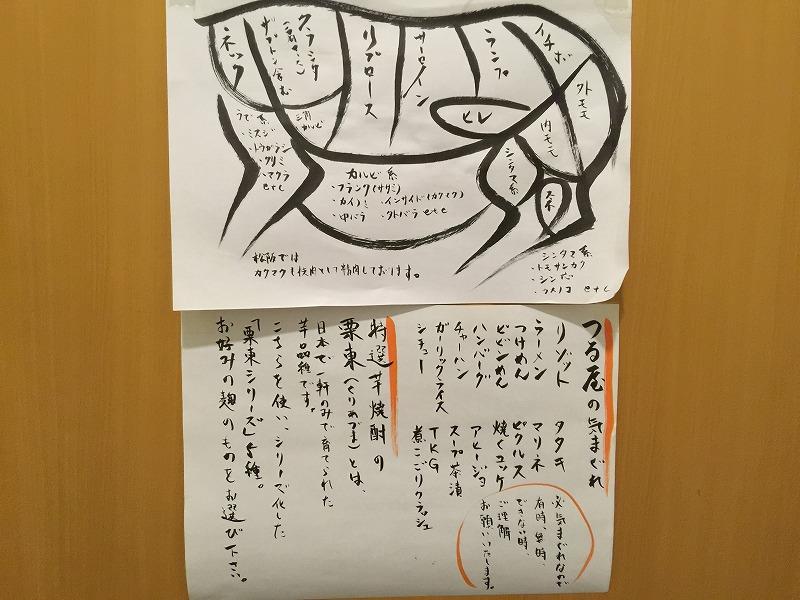 ネック
クラシタ
ザブトン含む
リブロース
サーロイン
ランプ
イチボ
ヒレ
外モモ
内モモ
シンタマ系
スネ
うで系
・ミスジ
・トウガラシ
・クリミ
・マクラ
etc
三角
カルビ
カルビ系
・フランク(ササミ)
・カイノミ ・インサイド(カクマク)
・中バラ ・外バラ etc
松阪では
カクマクも枝肉として精肉しております。
シンタマ系
・トモサンカク
・シンボ
・カメノコ etc
つる屋の気まぐれ
リゾット
ラーメン
つけめん
ビビンめん
ハンバーグ
チャーハン
ガーリックライス
シチュー
タタキ
マリネ
ピクルス
焼くユッケ
アヒージョ
スープ茶漬
TKG
煮こごりクラッシュ
気まぐれなので
有時、無時、
できない時、
ご理解
お願いいたします。
特選芋焼酎の
栗東(くりあずま)とは、
日本で一軒のみで育てられた
芋品種です。
こちらを使い、シリーズ化した
「栗東シリーズ」
お好みの麹のものをお選び下さい。